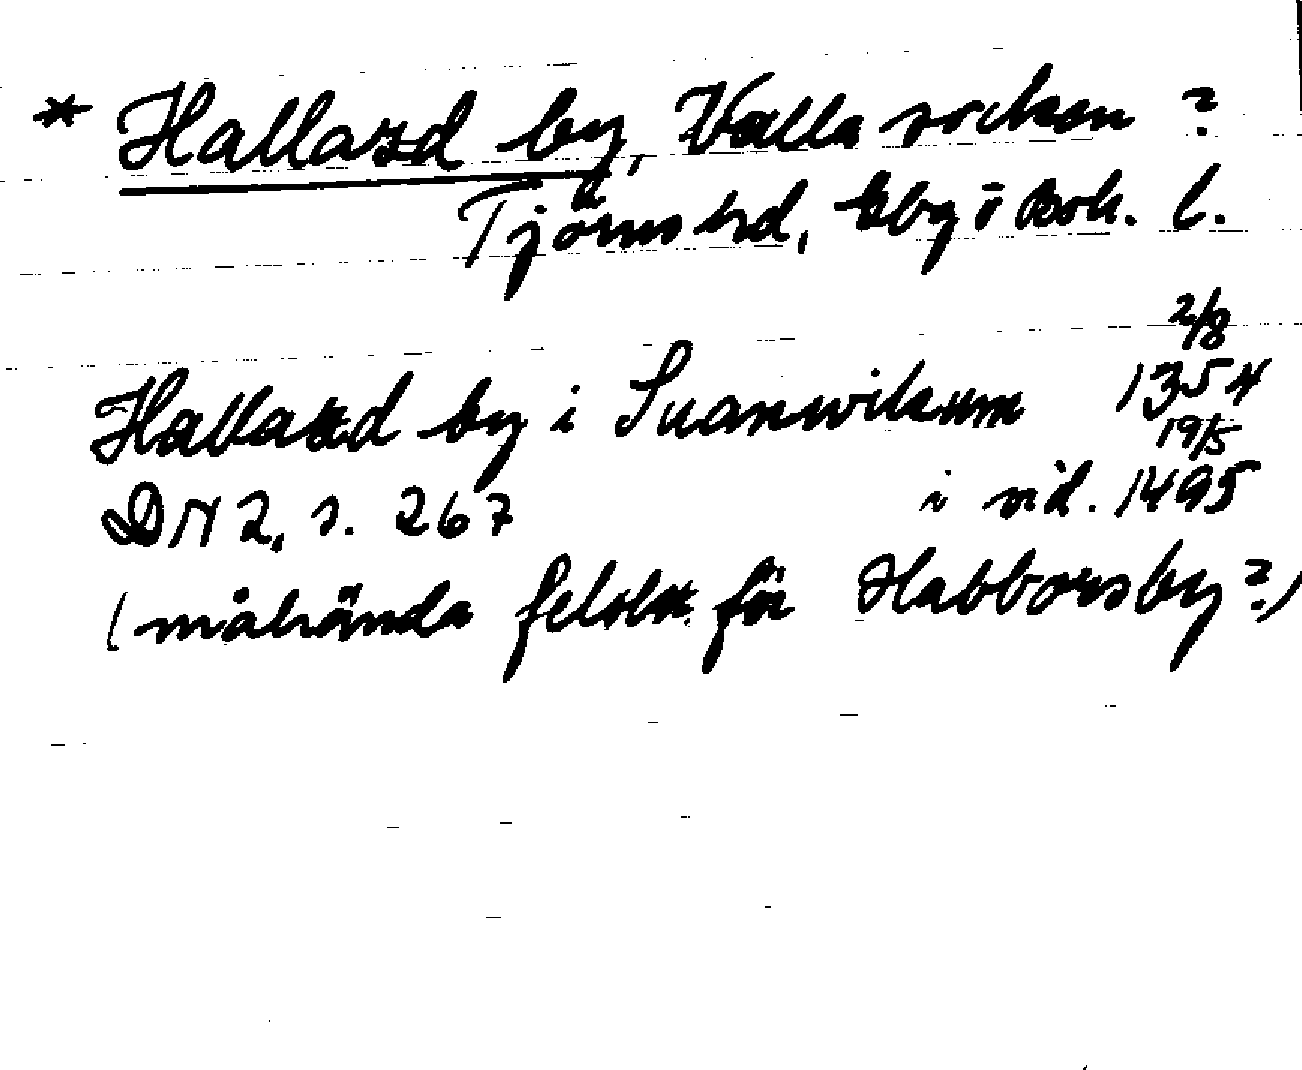 * Hallard by, Valla socken ?
Tjörns hd, Gbg o Boh. l.
2/8
Hallard by i Suanwiksum 1354
19/5
DN 2, s. 267 i vid. 1495
(måhända felskr. för Habborsby?)